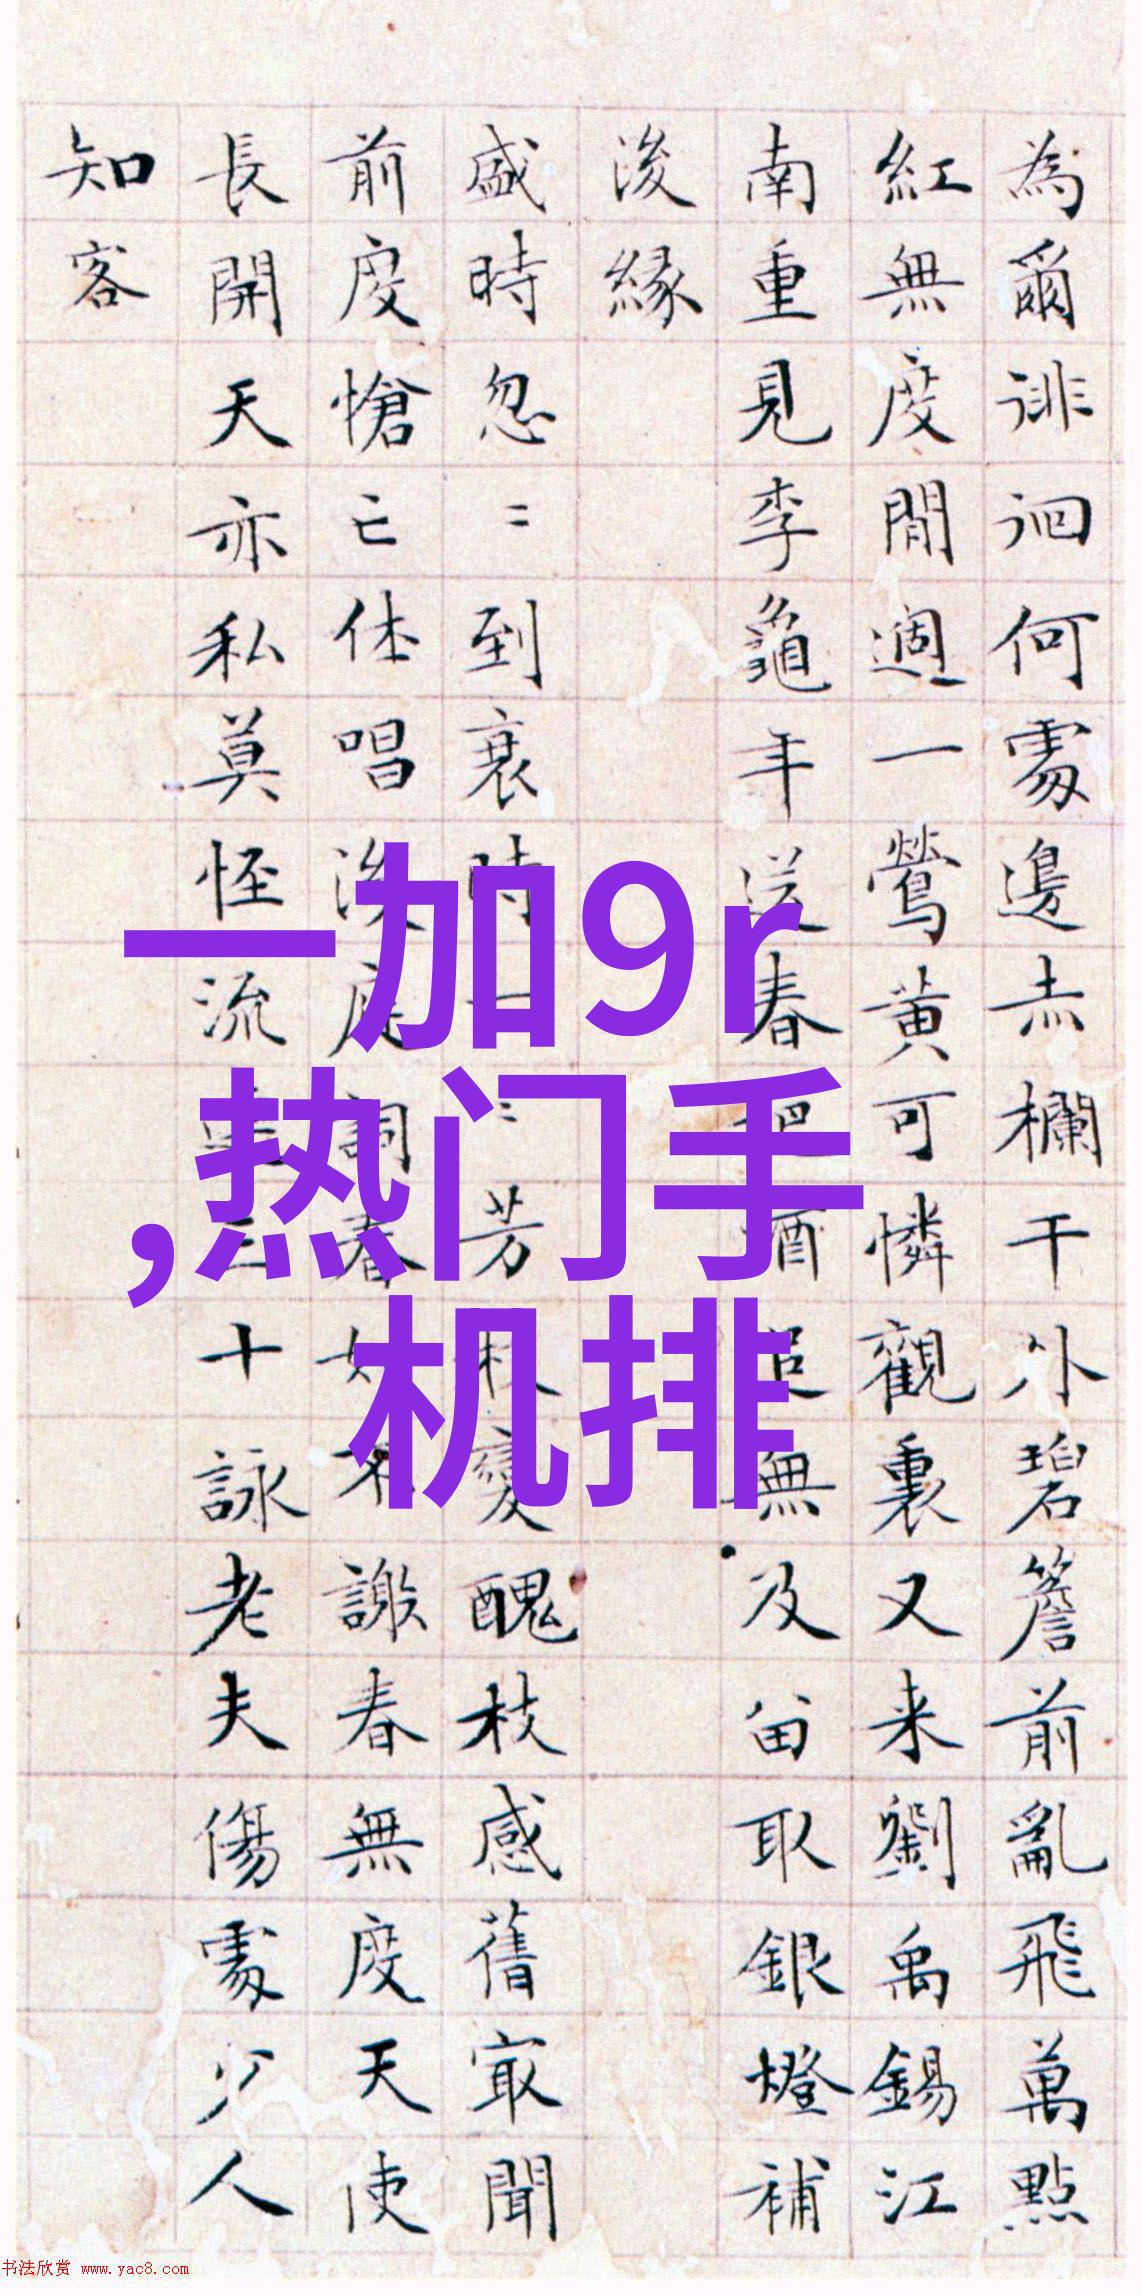 為爾徘徊何處邊赤欄干外碧簷前亂飛萬點
紅無度閒遍一鶯黃可憐觀裏又来劉禹錫江
南重見李龜年送春把酒追無及留取銀燈補
後緣
盛時忽〻到衰時一〻芳枝變醜枝感舊最聞
前度愴亡休唱後庭詞春如不謝春無度天使
長開天亦私莫怪流三十詠老夫傷處少人
知客
一加9r
,热门手
机排
书法欣赏 www.yac8.com